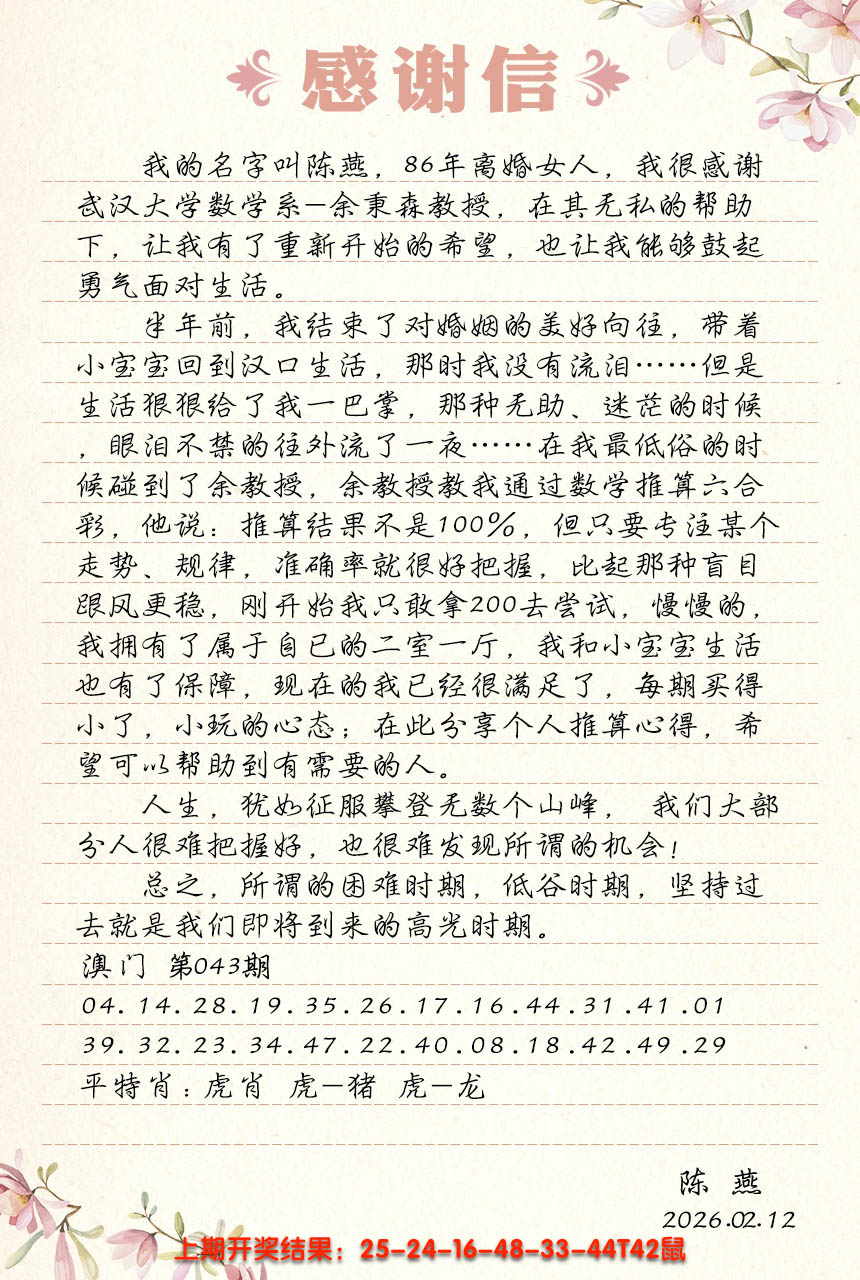 感谢信
我的名字叫陈燕，86年离婚女人，我很感谢
武汉大学数学系-余秉森教授，在其无私的帮助
下，让我有了重新开始的希望，也让我能够鼓起
勇气面对生活。
半年前，我结束了对婚姻的美好向往，带着
小宝宝回到汉口生活，那时我没有流泪……但是
生活狠狠给了我一巴掌，那种无助、迷茫的时候
，眼泪不禁的往外流了一夜……在我最低俗的时
候碰到了余教授，余教授教我通过数学推算六合
彩，他说：推算结果不是100%，但只要专注某个
走势、规律，准确率就很好把握，比起那种盲目
跟风更稳，刚开始我只敢拿200去尝试，慢慢的，
我拥有了属于自已的二室一厅，我和小宝宝生活
也有了保障，现在的我已经很满足了，每期买得
小了，小玩的心态；在此分享个人推算心得，希
望可以帮助到有需要的人。
人生，犹如征服攀登无数个山峰， 我们大部
分人很难把握好，也很难发现所谓的机会！
总之，所谓的困难时期，低谷时期，坚持过
去就是我们即将到来的高光时期。
澳门 第043期
04.14.28.19.35.26.17.16.44.31.41.01
39.32.23.34.47.22.40.08.18.42.49.29
平特肖：虎肖 虎-猪 虎-龙
陈 燕
2026.02.12
上期开奖结果：25-24-16-48-33-44T42鼠